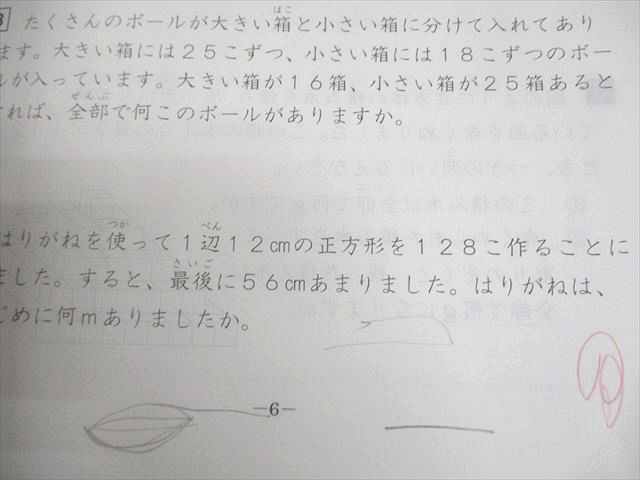 3 たくさんのボールが大きい箱と小さい箱に分けて入れてあり
ます。大きい箱には25こずつ、小さい箱には18こずつのボー
ルが入っています。大きい箱が16箱、小さい箱が25箱あると
すれば、全部で何このボールがありますか。
はりがねを使って1辺12cmの正方形を128こ作ることに
ました。すると、最後に56cmあまりました。はりがねは、
じめに何mありましたか。
-6-